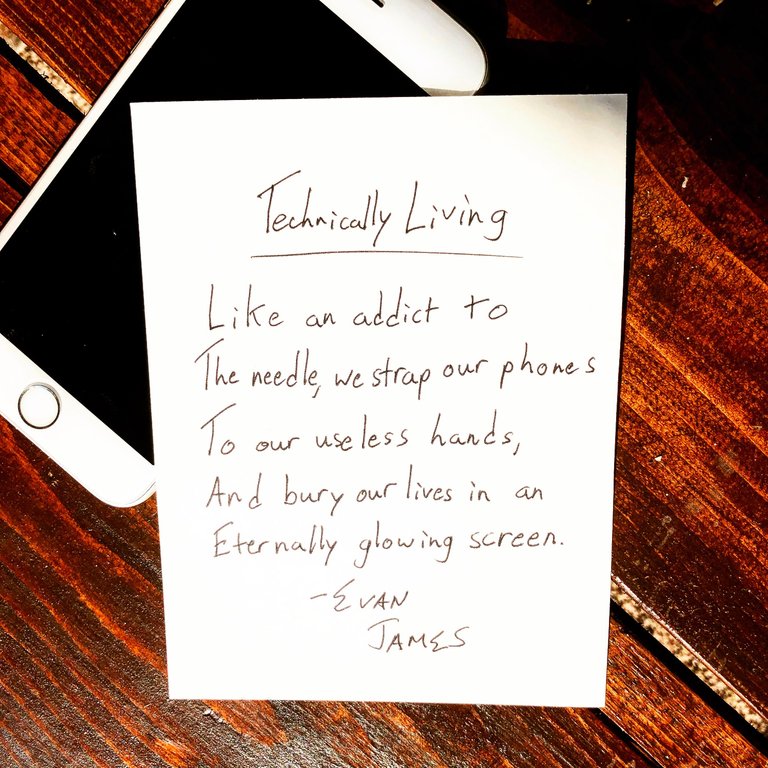 Technically Living
Like an addict to
The needle, we strap our phones
To our useless hands,
And bury our lives in an
Eternally glowing screen.
-Evan
James